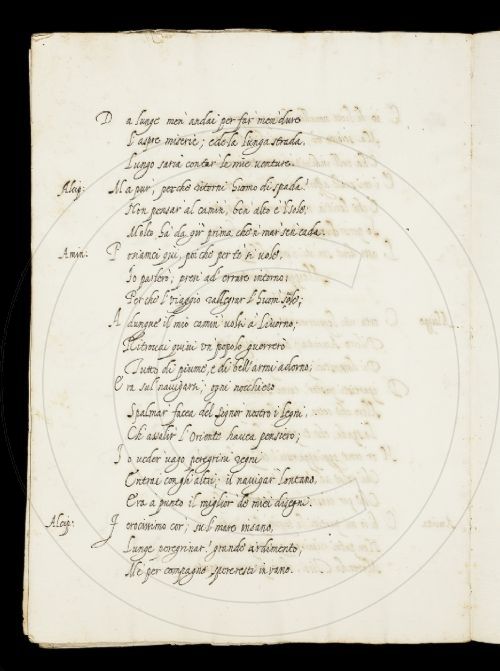 Da lunge men' andai per far men' dure
L'aspre miserie; e de la lunga strada.
Lungo saria contar le mie venture.
Alcip: Ma pur, perche ritorni huomo di spada?
Non pensar' al camin, ben' alto e 'l sole,
Molto hà da gir prima, che 'n mar' sen' cada.
Amin: Poniamci qui, poi che per te si vole,
Io parlerò; presi ad errare intorno;
Perche 'l viaggio rallegrar l'huom' sole;
Adunque il mio camin' volsi a Livorno;
Ritrovai quivi un popolo guerrero
Tutto di piume, e di bell'armi adorno;
Era sul navigare; ogni nocchiero
Spalmar facea del Signor nostro i legni
Ch' assalir l'Oriente havea pensiero;
Io veder vago peregrini regni
Entrai con gli altri; il navigar' lontano,
Era a punto il miglior de miei disegni.
Alcip: Ferocissimo cor'; su 'l mare insano,
Lunge peregrinar'! grande ardimento;
Me per compagno spereresti in vano.